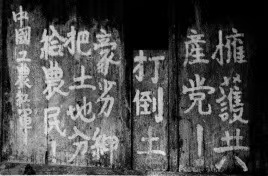 擁護共
產党！
打倒土
豪劣绅
把土地分
给農民！
中國工農紅軍